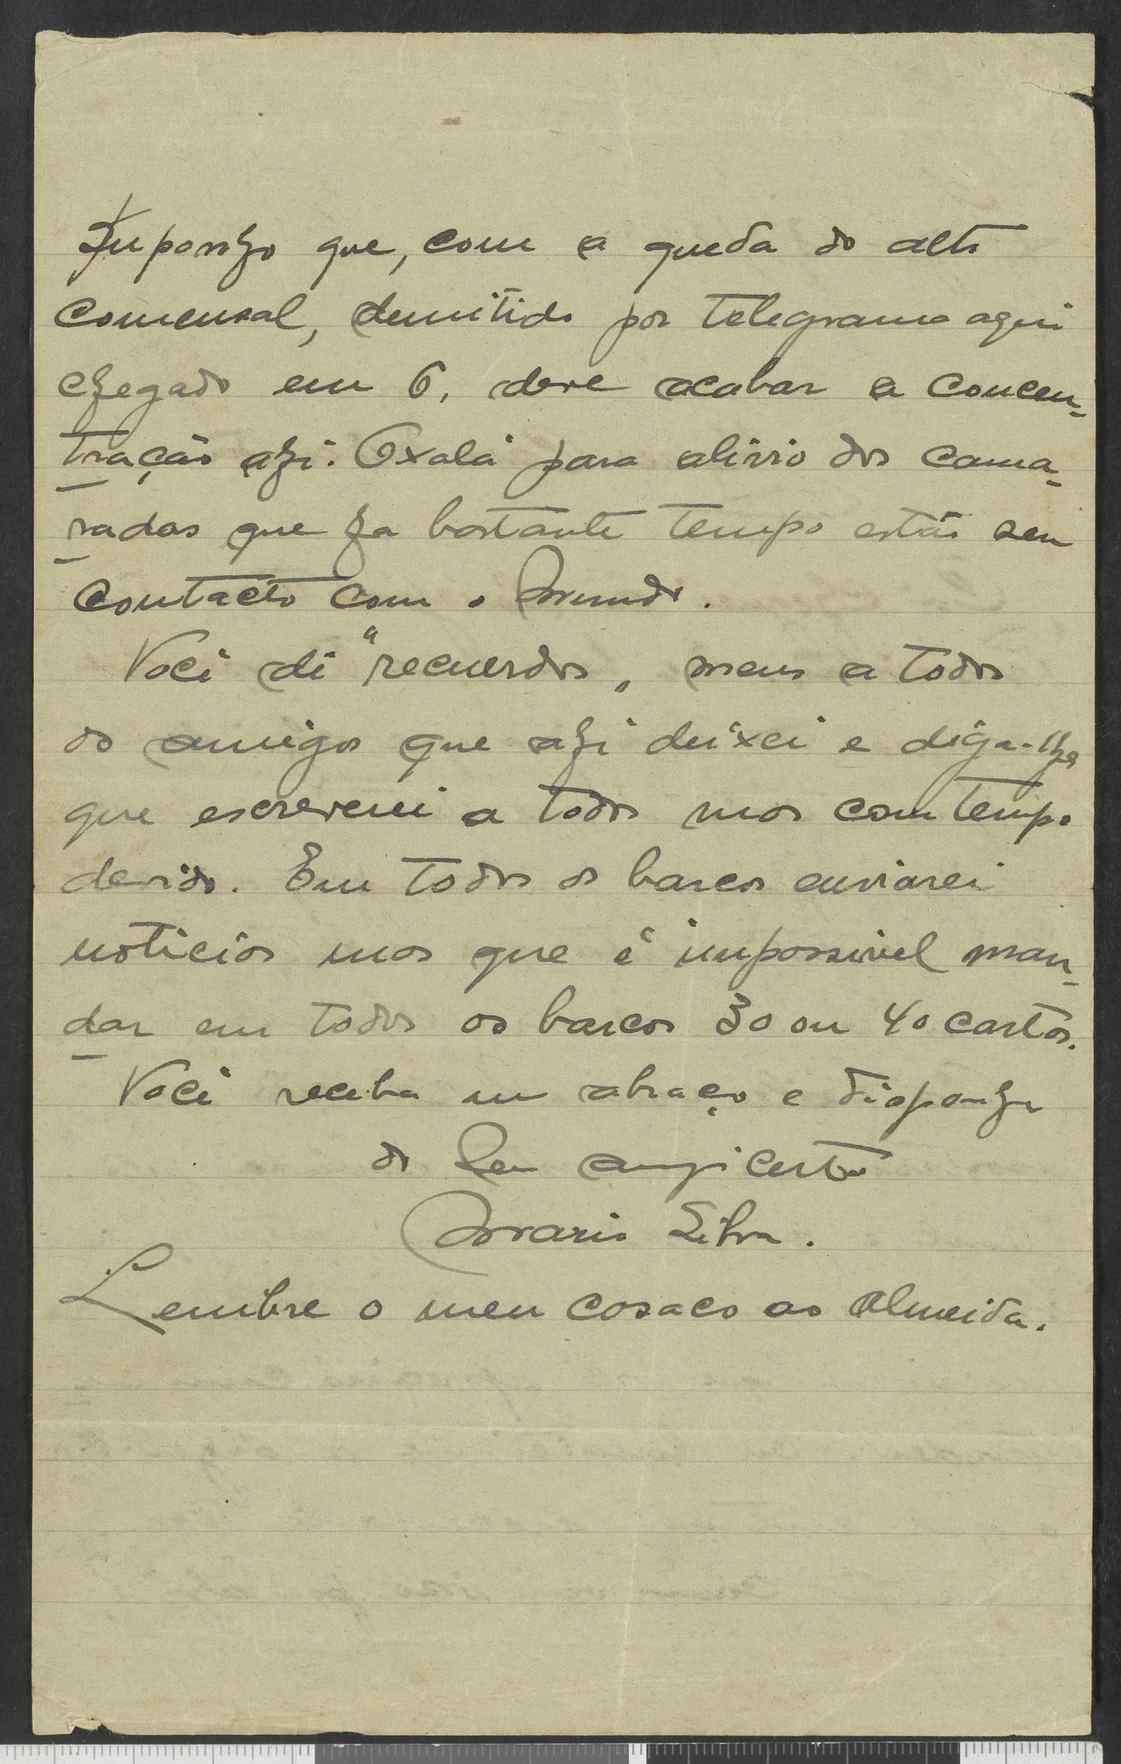 Suponho que, com a queda do alto
comensal, demitido por telegrama aqui
chegado em 6, deve acabar a concen-
tração ahi. Oxalá para alivio dos cama-
radas que ha bastante tempo estão sem
contacto com o Mundo.
Você dê "recuerdos" meus a todos
os amigos que ahi deixei e diga-lhes
que escreverei a todos mas com tempo
devido. Em todos os barcos enviarei
noticias mas que é impossivel man-
dar em todos os barcos 30 ou 40 cartas.
Você receba um abraço e disponha
do Seu amigo certo
Mario Silva.
Lembre o meu cosaco ao Almeida.